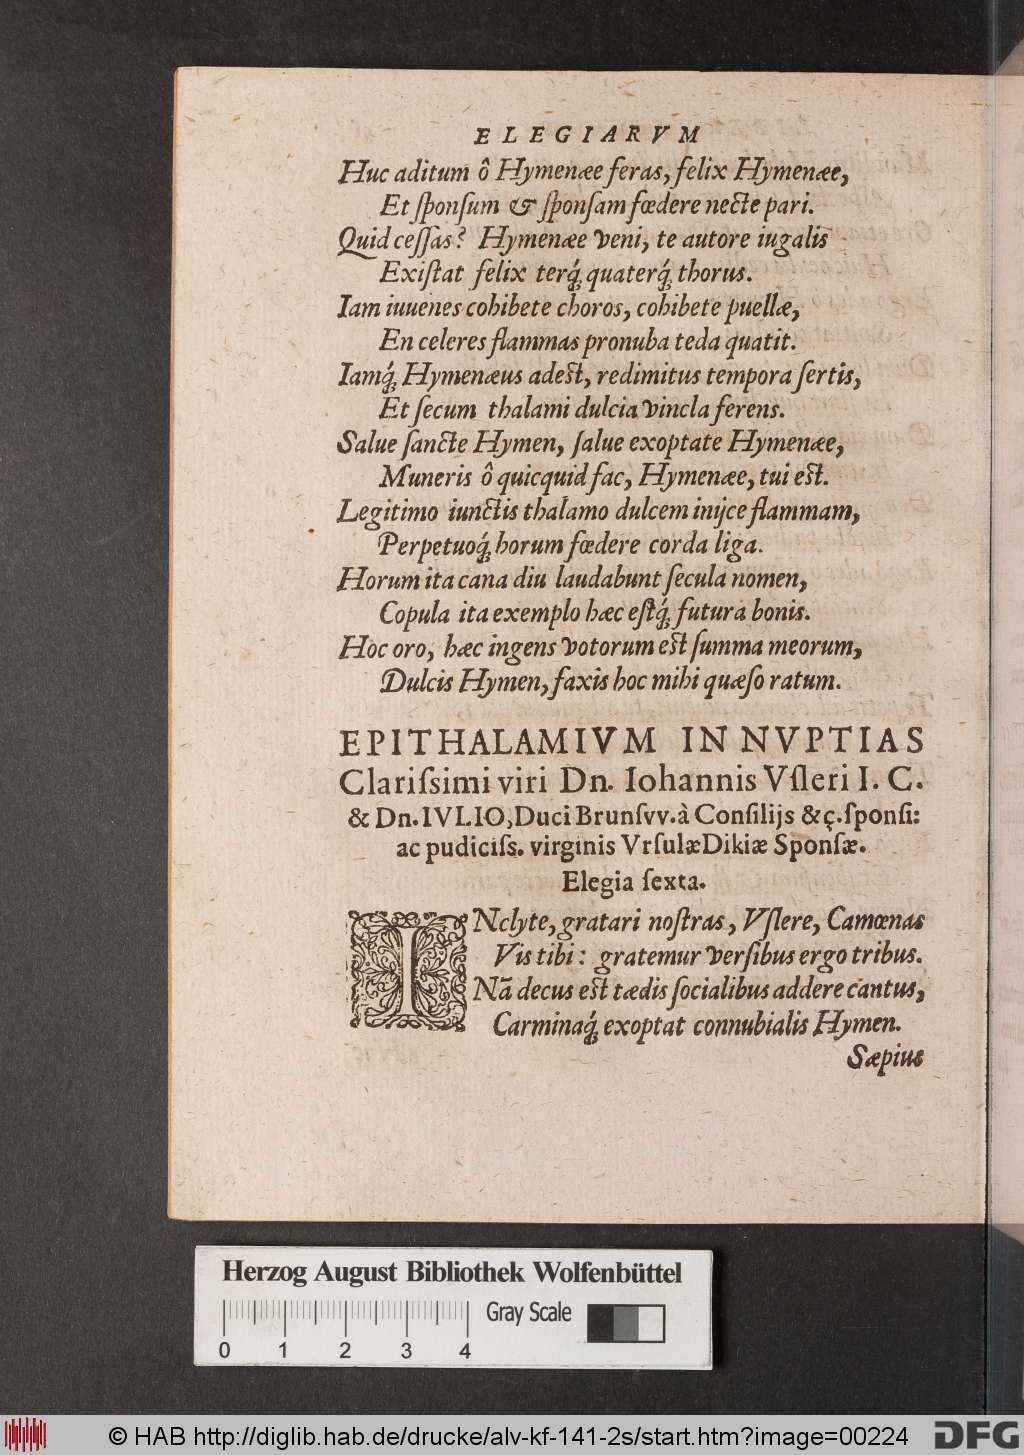 ELEGIARVM
Huc aditum ô Hymenæe feras, felix Hymenæe,
Et ſponſum & ſponſam fœdere necte pari.
Quid ceſſas? Hymenæe veni, te autore iugalis
Exiſtat felix terq́; quaterq́; thorus.
Iam iuuenes cohibete choros, cohibete puellæ,
En celeres flammas pronuba teda quatit.
Iamq́; Hymenæus adest, redimitus tempora ſertis,
Et ſecum thalami dulcia vincla ferens.
Salue ſancte Hymen, ſalue exoptate Hymenæe,
Muneris ô quicquid fac, Hymenæe, tui est.
Legitimo iunctis thalamo dulcem inijce flammam,
Perpetuoq́; horum fœdere corda liga.
Horum ita cana diu laudabunt ſecula nomen,
Copula ita exemplo hæc eſtq́; futura bonis.
Hoc oro, hæc ingens votorum est ſumma meorum,
Dulcis Hymen, faxis hoc mihi quæſo ratum.
EPITHALAMIVM IN NVPTIAS
Clariſsimi viri Dn. Iohannis Vſleri I. C.
& Dn. IVLIO, Duci Brunſvv. à Conſilijs &ç. ſponſi:
ac pudiciſs. virginis Vrſulæ Dikiæ Sponſæ.
Elegia ſexta.
INclyte, gratari noſtras, Vſlere, Camœnas
Vis tibi: gratemur verſibus ergo tribus.
Nã decus est tædis ſocialibus addere cantus,
Carminaq́; exoptat connubialis Hymen.
Sæpius
Herzog August Bibliothek Wolfenbüttel
Gray Scale
0 1 2 3 4
© HAB http://diglib.hab.de/drucke/alv-kf-141-2s/start.htm?image=00224
DFG